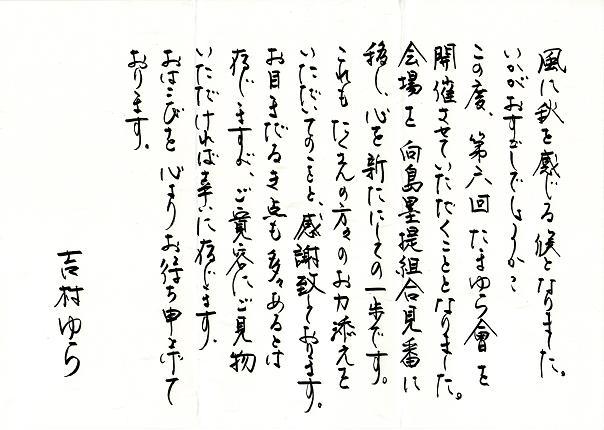 風に秋を感じる候となりました。
いかがおすごしでしょうか？
この度、第六回たまゆら會を
開催させていただくこととなりました。
会場を向島墨堤組合見番に
移し、心を新たにしての一歩です。
これもたくさんの方々のお力添えを
いただいてのことと、感謝致しております。
お目まだるき点も多々あるとは
存じますが、ご寛容にご見物
いただければ幸いに存じます。
おはこびを心よりお待ち申上げて
おります。
吉村ゆら